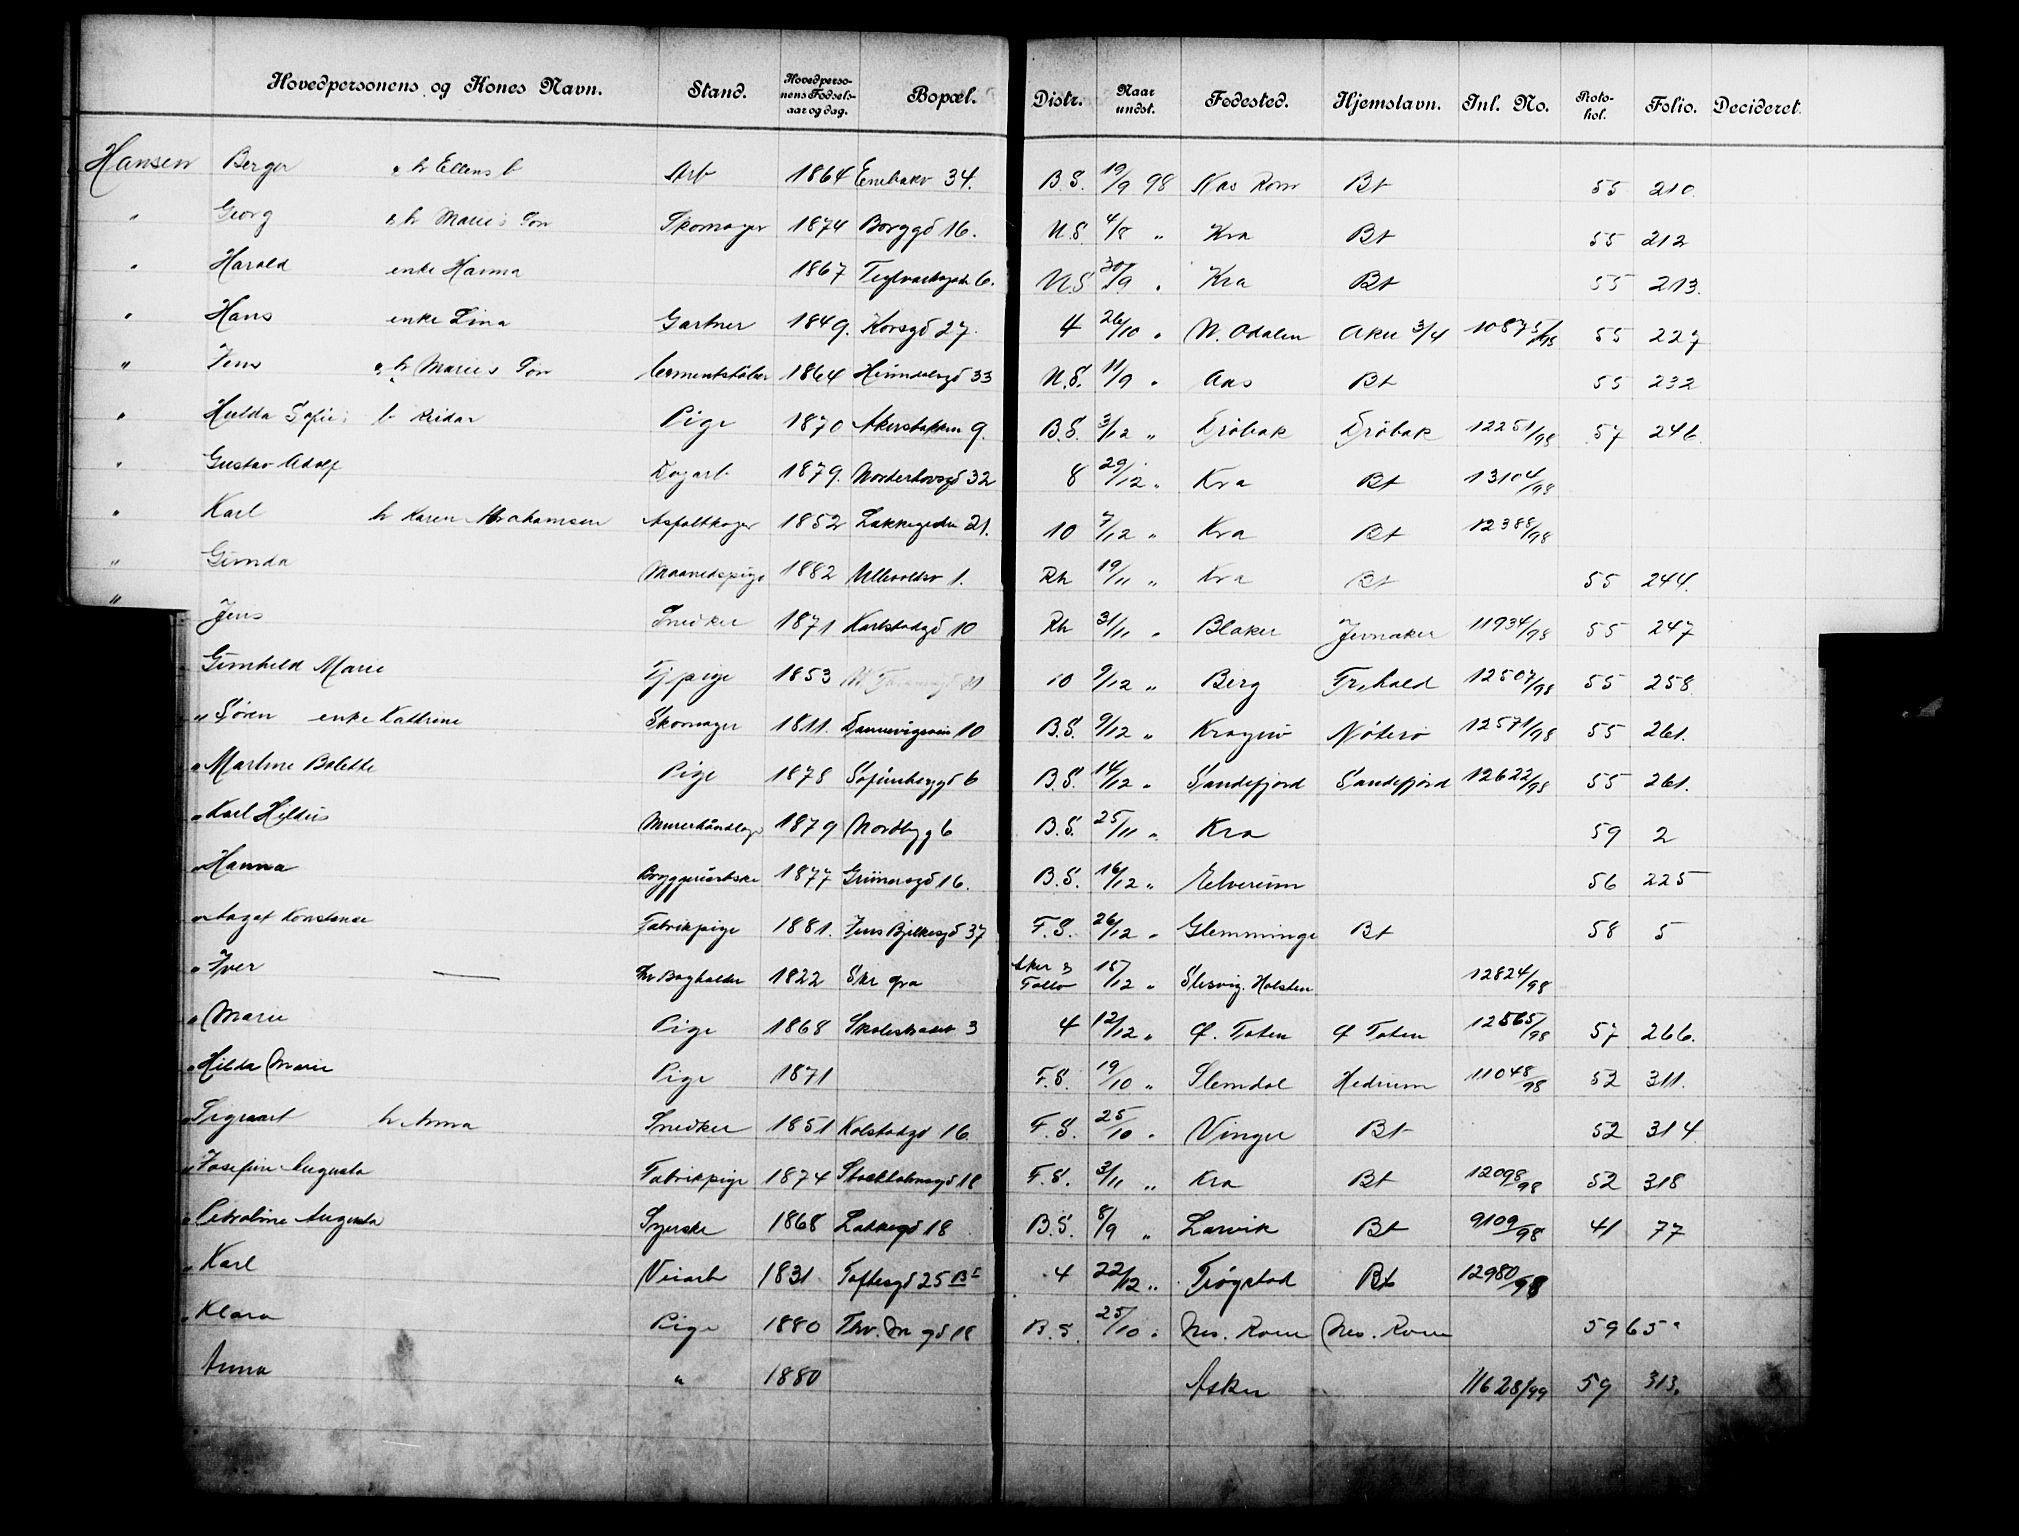 Hovedpersonens og Kones Navn. Stand. Hovedpersonens Fødselsaar og dag. Bopæl. Distr. Naar undst. Fødested. Hjemstavn. Inl. No. Protokol. Folio. Decideret.
Hansen Berger Ellens Arb 1864 34. B.S. 19/9 98 Nas Rom Bt 55 210.
" Georg Marie's Søn Skomager 1874 Borggd 16. N.S. 4/8 " Kra Bt 55 212
" Harald enke Hanna 1867 6. N.S 30/9 " Kra Bt 55 213.
" Hans enke Lina Gartner 1849. Korsgd 27. 4 26/10 " N. Odalen Aker 3/4 10875/98 55 227
" Jens Marie's Søn Cementstøber 1864 Heimdalsgd 33 N.S. 11/9 " Aas Bt 55 232
" Hulda Sofie b Reidar Pige 1870 Akersbakken 9. B.S. 3/12 " Drøbak Drøbak 12251/98 57 246
" Gustav Adolf Dagarb 1879. Norderhovsgd 32 8 29/12 " Kra Bt 13104/98
" Karl h Karen Abrahamsen Asfaltkoger 1852 Lakkegaden 21. 10 7/12 " Kra Bt 12388/98
" Gunda Maanedspige 1882 Ullevoldsv 1. Rh 19/11 " Kra Bt 55 244.
" Jens Snedker 1871 Karlstadgd 10 Rh 31/11 " Blaker Jevnaker 11934/98 55 247
Gunhild Marie Tj.pige 1853 10 9/12 " Berg Fr.hald 12507/98 55 258
" Søren enke Kathrine Skomager 1811. Dannevigsvein 10 B.S. 9/12 " Kragerø Nøterø 12571/98 55 261.
" Martine Bolette Pige 1878 Sofienbergd 6 B.S. 14/12 " Sandefjord Sandefjord 12622/98 55 261.
" Karl Hilder Murerhåndlager 1879 Nordbyg 6 B.S. 25/11 " Kra 59 2
" Hanna Bryggeriarbske 1877 Grünersgd 16. B.S. 16/12 " Elverum 56 225
" Aagot Konstanse Fabrikpige 1881. Jens Bjelkesgd 37 F.S. 26/12 " Glemminge Bt 58 5
" Iver Bogholder 1822 Aker & Follo 15/12 " Slesvig. Holsten 12824/98
" Marie Pige 1868 Skolestrædet 3 4 12/12 " Ø. Toten Ø Toten 12565/98 57 266.
" Hilda Marie Pige 1871 F.S. 19/10 " Slemdal Hedrum 11048/98 52 311.
" Sigvart h Anna Snedker 1851 Kolstadgd 16 F.S. 25/10 " Vinger Bt 52 314
" Josefine Augusta Fabrikpige 1874 Stockholmsgd 18 F.S. 3/11 " Kra Bt 12098/98 52 318
" Petroline Augusta Syerske 1868 Lakkegd 18 B.S. 8/9 " Larvik Bt 9109/98 41 77
" Karl Veiarb 1831 Toftesgd 25 B I 4 22/12 " Trøgstad Bt 12980/98
" Klara Pige 1880 Thv. M gd 18 B.S. 25/10 " Nes. Rom Nes. Rom 59 65"
Anna " 1880 Asker 11628/99 59 313.